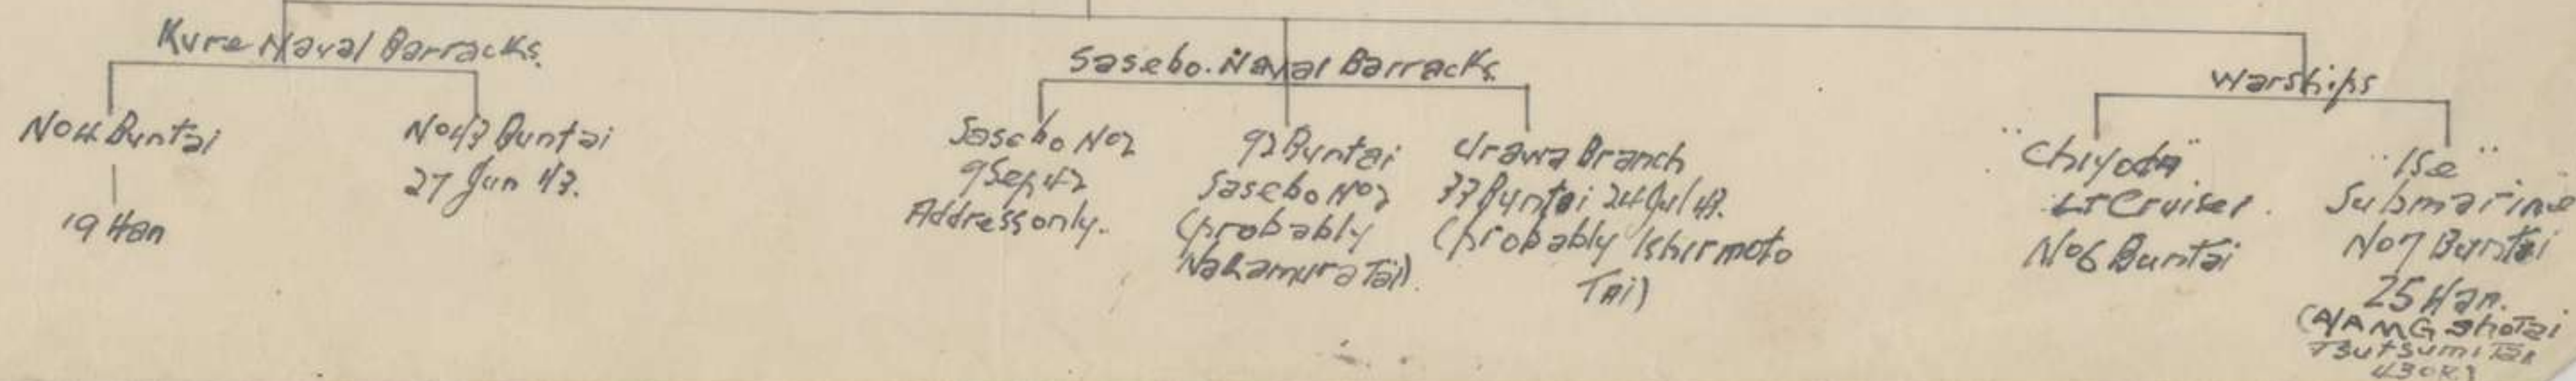 Kure Naval Barracks.
No 4 Buntai
19 Han
No 43 Buntai
27 Jun 43.
Sasebo. Naval Barracks
Sasebo No 2
9 Sep 42
Address only.
92 Buntai
Sasebo No 2
(probably
Nakamura Tai).
Urawa Branch
33 Buntai 24 Jul 43.
(probably Ishirmoto
Tai)
Warships
"Chiyoda"
Lt Cruiser.
No 6 Buntai
"Ise"
Submarine
No 7 Buntai
25 Han.
(A/AMG Shotai
Tsutsumi Tai